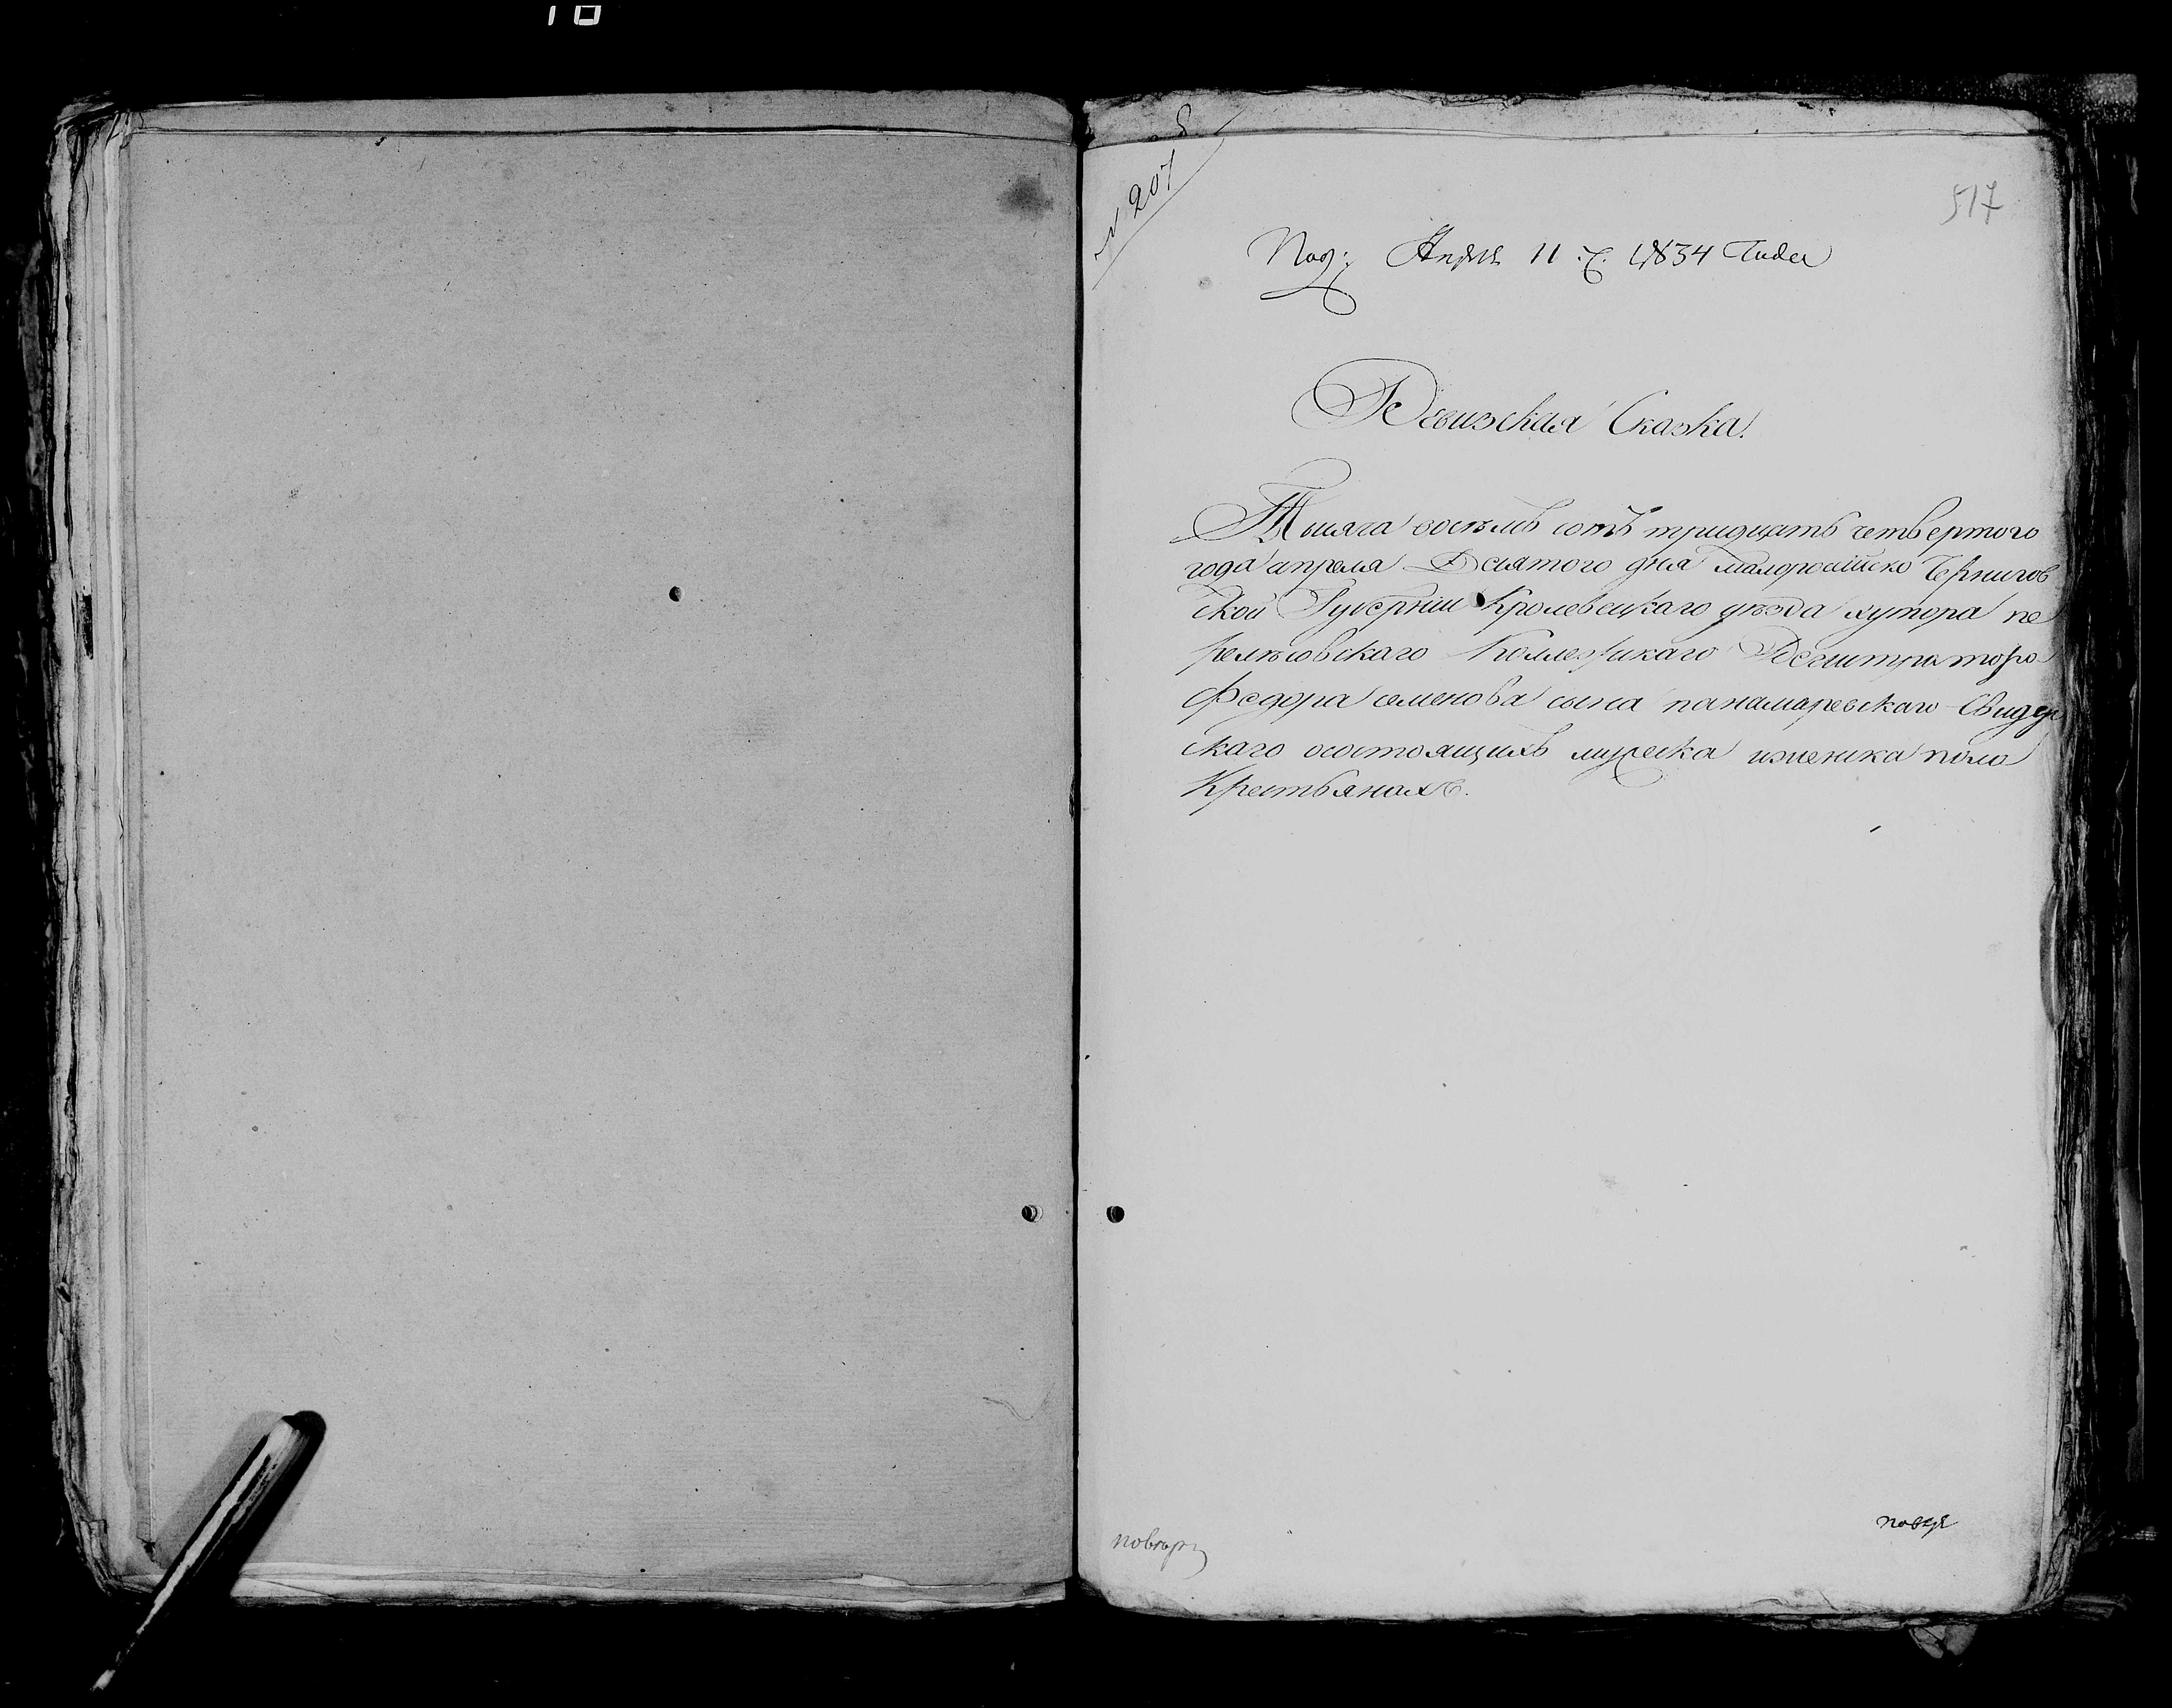 № 207
517
Под: Апреля 11 ч. 1834 года
Ревизская Сказка.
Тысяча восѣмь сотъ тридцать четвертого
года апреля Десятого дня малоросійско Чернигов
ской Губерніи Кролевецкаго уѣзда хутора пе
релѣсовскаго Коллежскаго Регистратора
Федора семенова сына панамаревскаго Свидер
скаго осостоящихъ мужеска иженска пола
Крестьянахъ.
повѣря